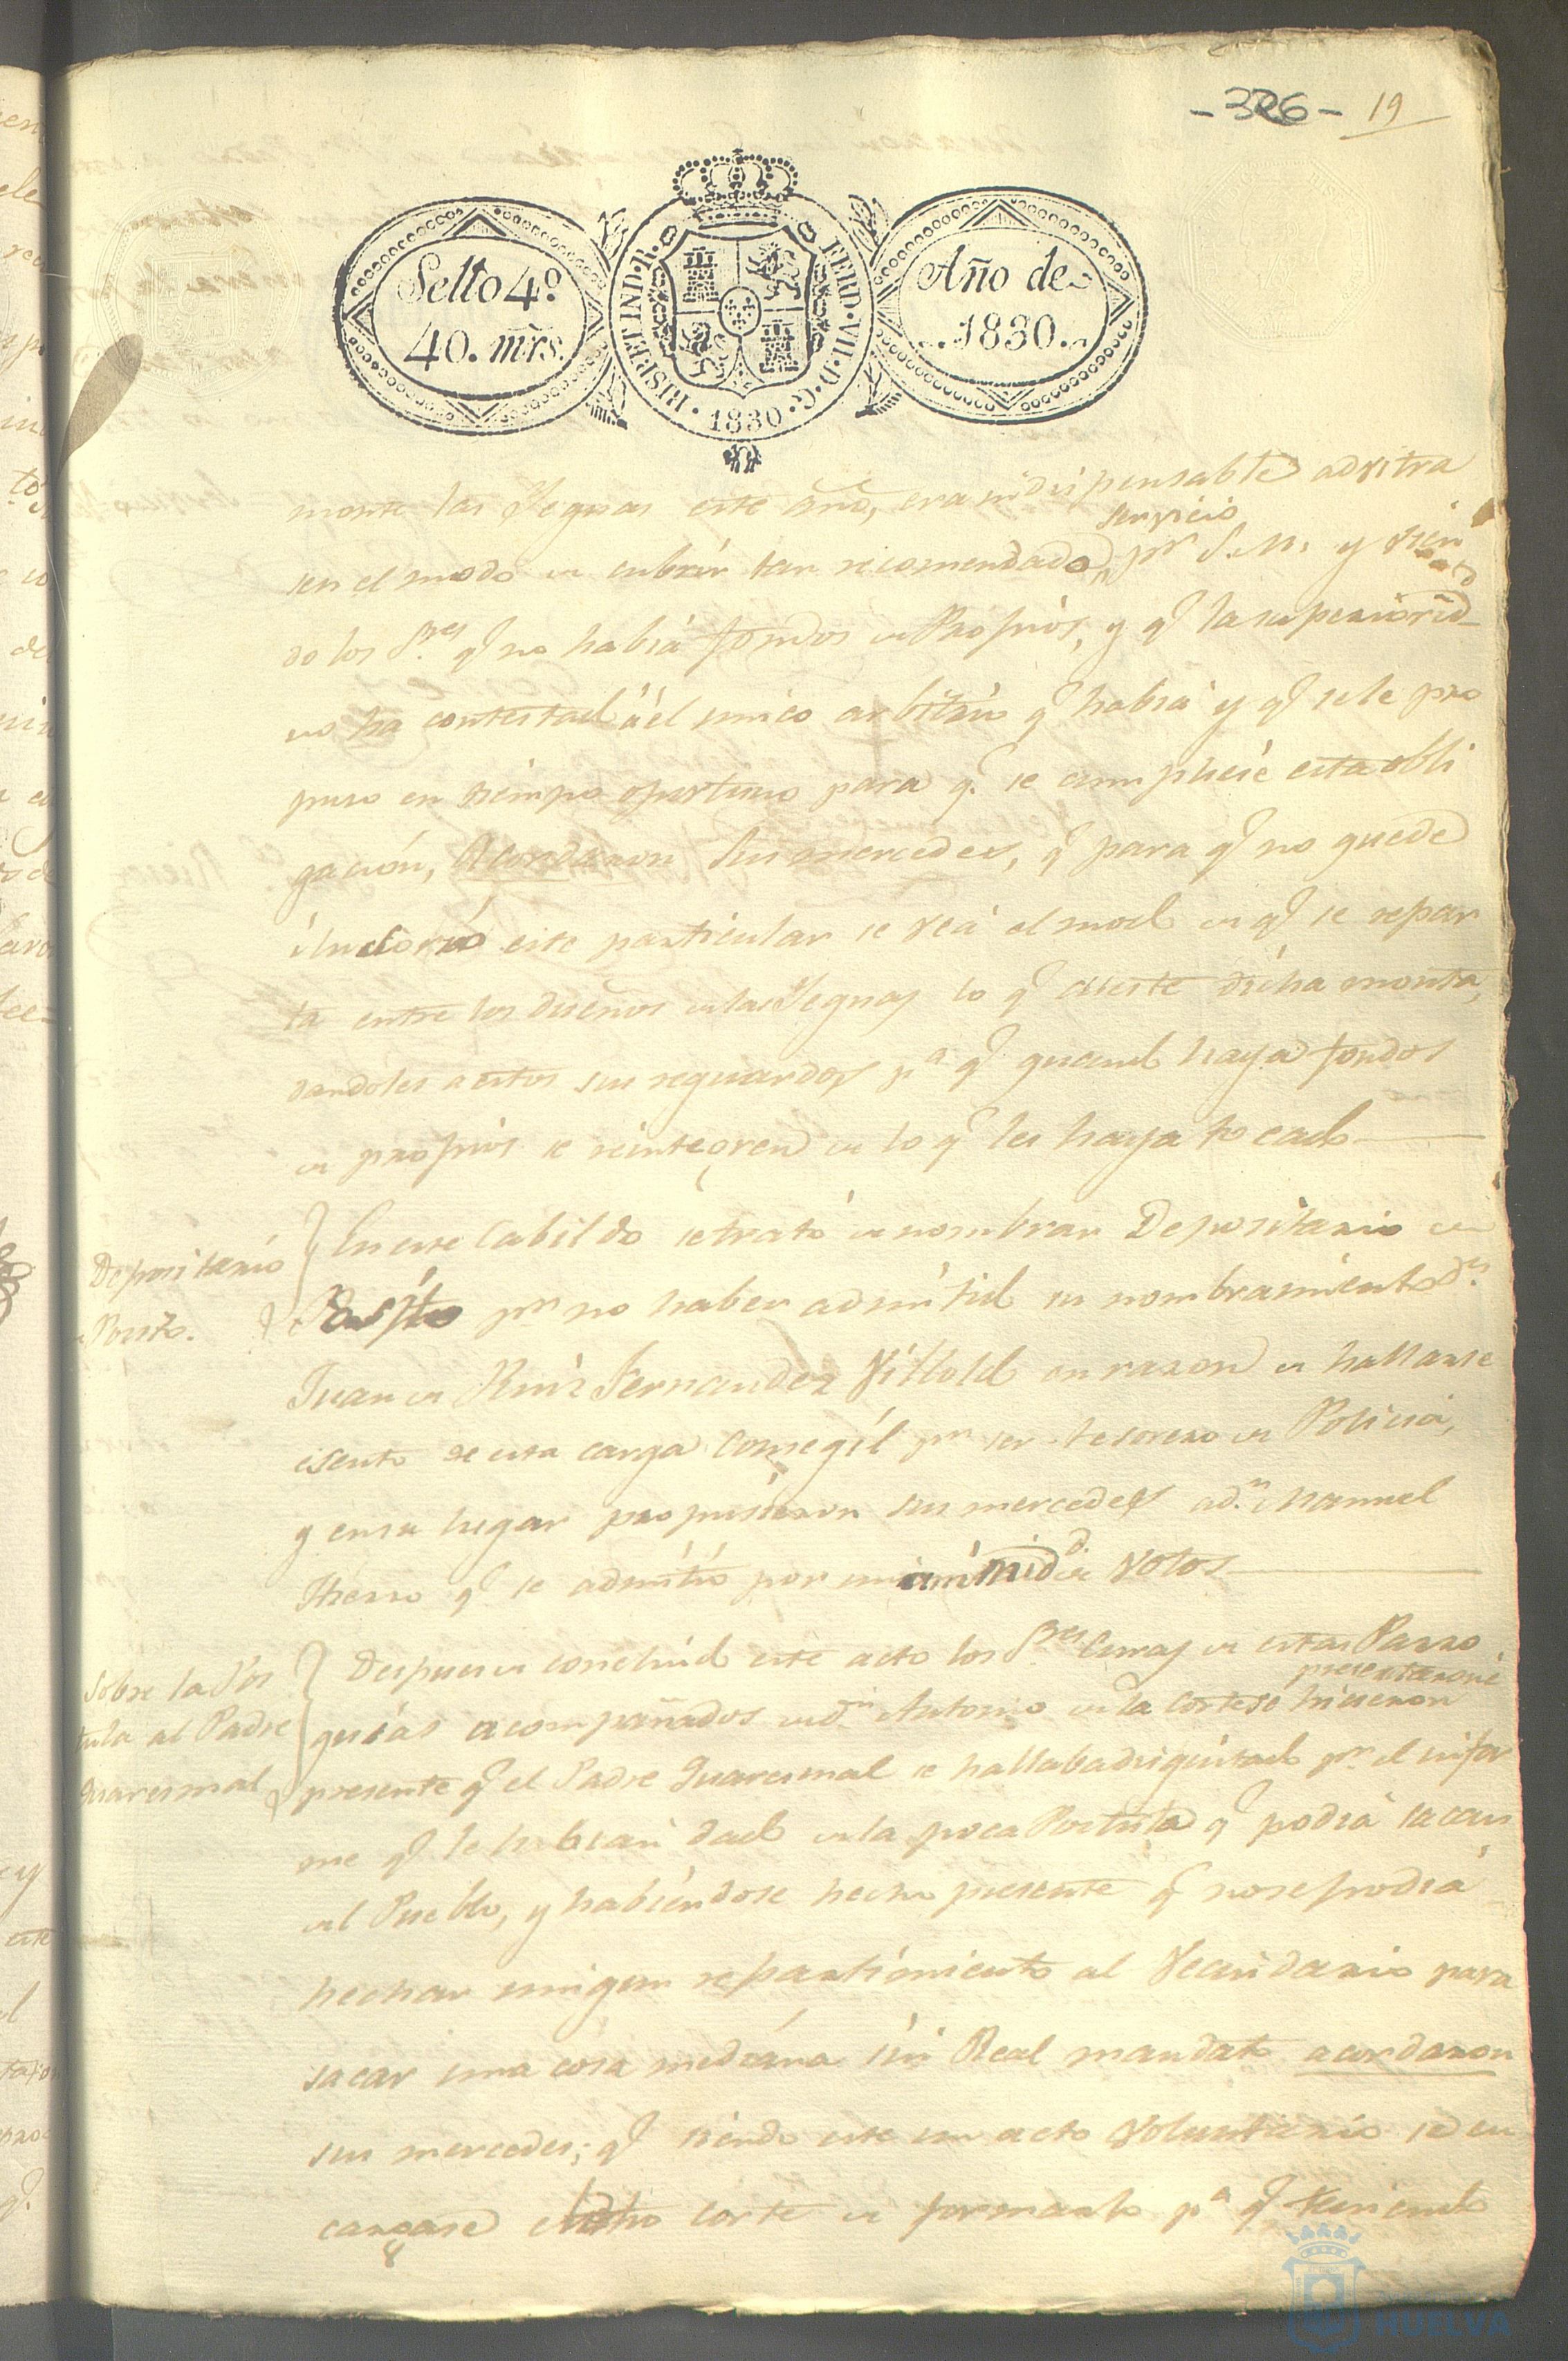 -326- 19
Sello 4º
40. mrs.
HISP. ET IND. R. FERD. VII. D. G. 1830.
Año de
1830.
monte las Yeguas este año, era indispensable advitra
servicio
sen el modo de cubrir tan recomendado pr S. M. y vien
do los Sres. q.e no habia fondos de Propios, y q.e la superiorid.d
no ha contestado á el unico arbitrio q.e habia y q.e se le pro
puso en tiempo oportuno para q.e se cumpliese esta obli
gacion, Acordaron sus mercedes, q.e para q.e no quede
ilusorio este particular se vea el modo de q.e se repar
ta entre los dueños de las Yeguas lo q.e cueste dicha monta,
dandoles a estos sus reguardos p.a q.e quando haya fondos
de propios se reintegren de lo q.e les haya tocado
Depositario
de Posito.
En este Cabildo se trató de nombrar Depositario de
Posito pr no haber admitido su nombramiento Dn.
Juan de Ruiz Fernandez Villoldo en razon de hallarse
esento de esta carga Consegil pr ser tesorero de Policia,
y en su lugar propusieron sus mercedes a d.n Manuel
Hierro q.e se admitió por unanimid.d de votos
Sobre la Pos
tula al Padre
Quaresmal
Despues de concluido este acto los Sres. Curas de estas Parro
presentaron é
quias acompañados de d.n Antonio de la Corte se hicieron
presente q.e el Padre Quaresmal se hallaba disgustado pr. el infor
me q.e le habian dado de la poca Postula q.e podia sacar
del Pueblo, y habiendose hecho presente q.e no se podia
hechar ningun repartimiento al Vecindario para
sacar una cosa mediana sin Real mandato acordaron
sus mercedes; q.e siendo este un acto voluntario se en
cargase dicho Corte de formarlo p.a q.e teniendo
HUELVA